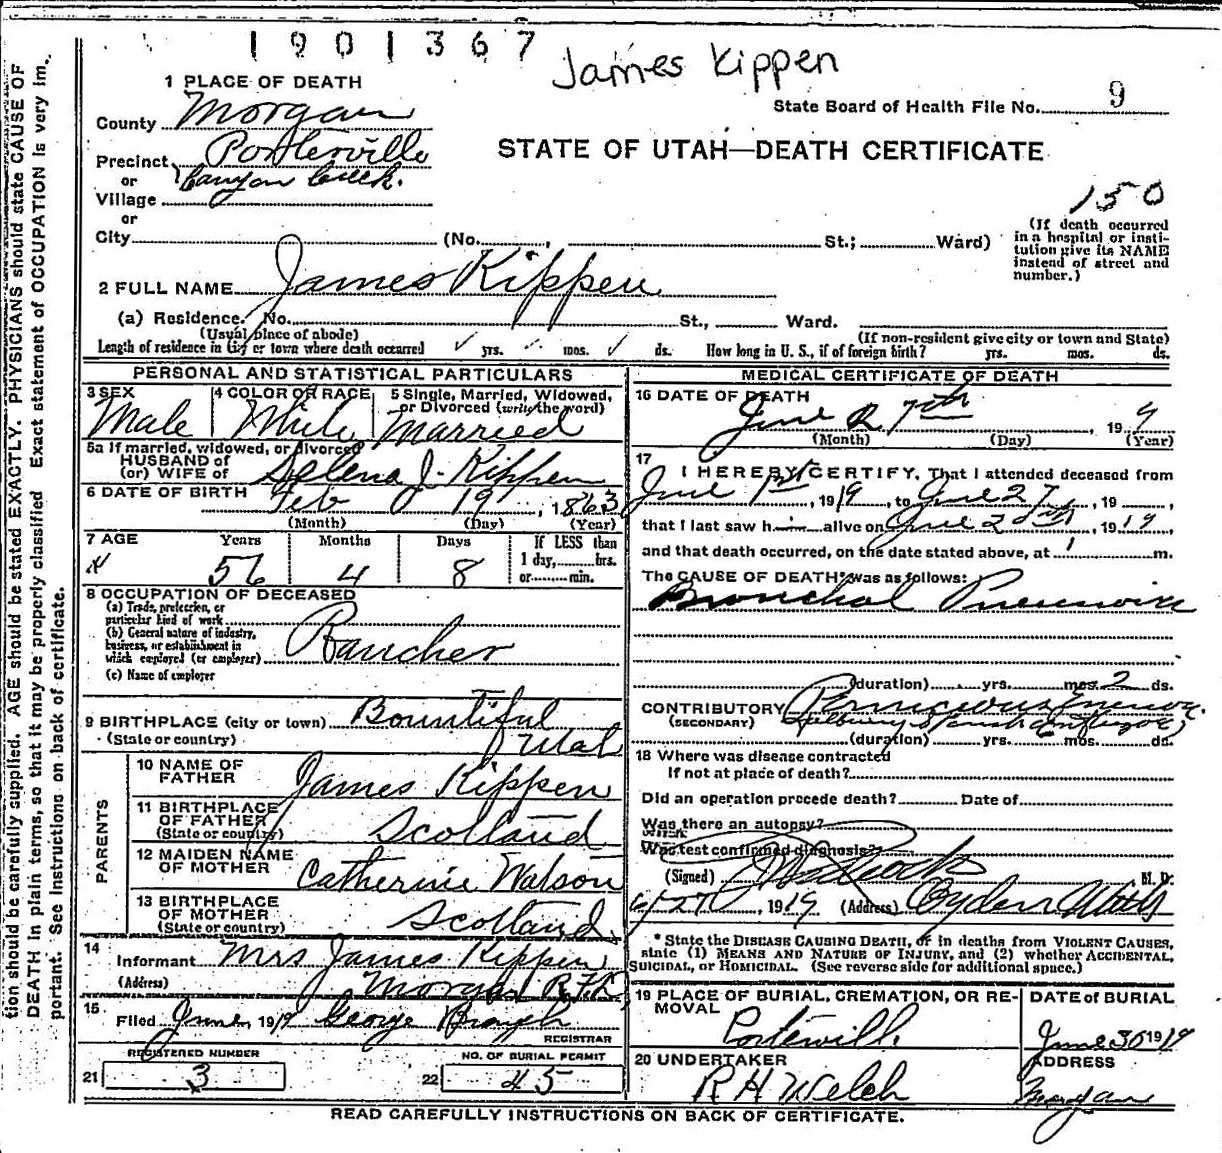 1901367
James Kippen
1 PLACE OF DEATH
State Board of Health File No. 9
County Morgan
STATE OF UTAH—DEATH CERTIFICATE
Precinct Porterville
or Canyon Creek.
Village
or
150
City (No. , St.; Ward)
(If death occurred in a hospital or insti-
tution give its NAME instead of street and number.)
2 FULL NAME James Kippen
(a) Residence. No. St., Ward.
(Usual place of abode) (If non-resident give city or town and State)
Length of residence in city or town where death occurred yrs. mos. ds. How long in U. S., if of foreign birth? yrs. mos. ds.
PERSONAL AND STATISTICAL PARTICULARS
3 SEX 4 COLOR OR RACE 5 Single, Married, Widowed,
or Divorced (write the word)
Male White Married
5a If married, widowed, or divorced
HUSBAND of
(or) WIFE of Selena J. Kippen
6 DATE OF BIRTH Feb 19, 1863
(Month) (Day) (Year)
7 AGE Years Months Days If LESS than
1 day, hrs.
56 4 8 or min.
8 OCCUPATION OF DECEASED
(a) Trade, profession, or
particular kind of work
(b) General nature of industry,
business, or establishment in
which employed (or employer) Rancher
(c) Name of employer
9 BIRTHPLACE (city or town) Bountiful
(State or country) Utah
PARENTS
10 NAME OF
FATHER James Kippen
11 BIRTHPLACE
OF FATHER
(State or country) Scotland
12 MAIDEN NAME
OF MOTHER Catherine Watson
13 BIRTHPLACE
OF MOTHER
(State or country) Scotland
14
Informant Mrs James Kippen
(Address) Morgan
15
Filed June, 1919 George Brough
REGISTRAR
REGISTERED NUMBER NO. OF BURIAL PERMIT
21 3 22 45
MEDICAL CERTIFICATE OF DEATH
16 DATE OF DEATH
June 27th, 199
(Month) (Day) (Year)
17
I HEREBY CERTIFY, That I attended deceased from
June 1st, 1919, to June 27, 19
that I last saw him alive on June, 1919
and that death occurred, on the date stated above, at 1 m.
The CAUSE OF DEATH* was as follows:
Bronchal Pneumonia
(duration) yrs. mos. 2 ds.
CONTRIBUTORY Pernicious
(SECONDARY) following Spanish Influenza
(duration) yrs. 6 mos. ds.
18 Where was disease contracted
If not at place of death?
Did an operation precede death? Date of
Was there an autopsy?
What test confirmed diagnosis?
(Signed) M. D.
6/27, 1919 (Address) Ogden Utah
* State the DISEASE CAUSING DEATH, or in deaths from VIOLENT CAUSES,
state (1) MEANS AND NATURE OF INJURY, and (2) whether ACCIDENTAL,
SUICIDAL, or HOMICIDAL. (See reverse side for additional space.)
19 PLACE OF BURIAL, CREMATION, OR RE-
MOVAL
DATE of BURIAL
Porterville June 30 1919
20 UNDERTAKER ADDRESS
R H Welch Morgan
READ CAREFULLY INSTRUCTIONS ON BACK OF CERTIFICATE.
tion should be carefully supplied. AGE should be stated EXACTLY. PHYSICIANS should state CAUSE OF
DEATH in plain terms, so that it may be properly classified. Exact statement of OCCUPATION is very im-
portant. See instructions on back of certificate.